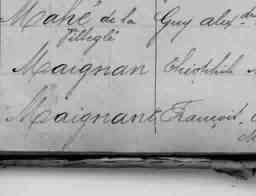 Mahé de la Guy alex dre
Villeglé
Maignan Théophile
Maignant François